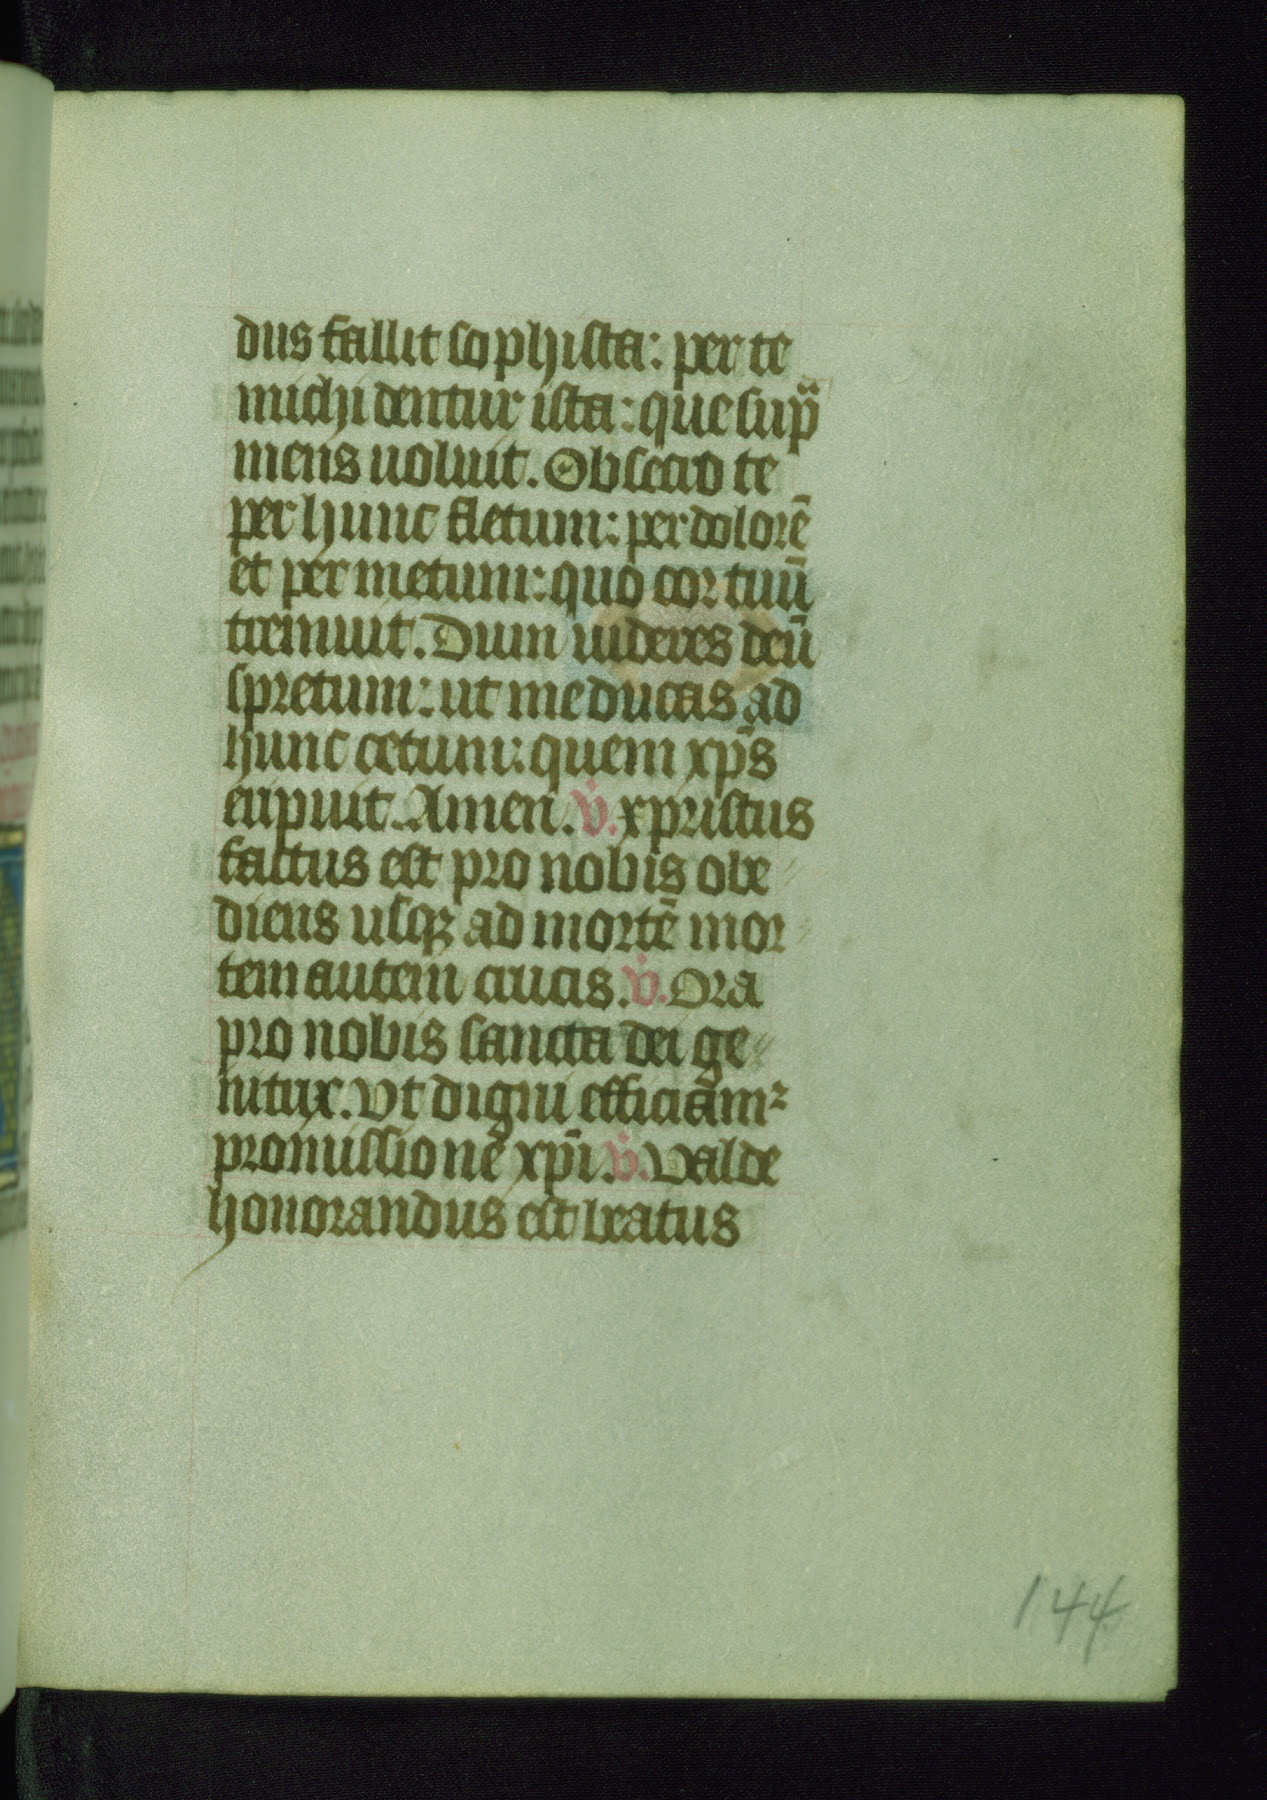 dus fallit sophista: per te
michi dentur ista: que sup̄
mens uoluit. Obsecro te
per hunc fletum: per dolorē
et per metum: quo cor tuū
tremuit. Dum uideres deū
spretum: ut me ducas ad
hunc cetum: quem xp̄s
eripuit. Amen. v̇. xpristus
factus est pro nobis obe
diens usqꝫ ad mortē mor
tem autem crucis. v̇. Ora
pro nobis sancta dei ge
nitrix. Vt digni efficiam᷑
promissionē xp̄i. v̇. Valde
honorandus est beatus
144